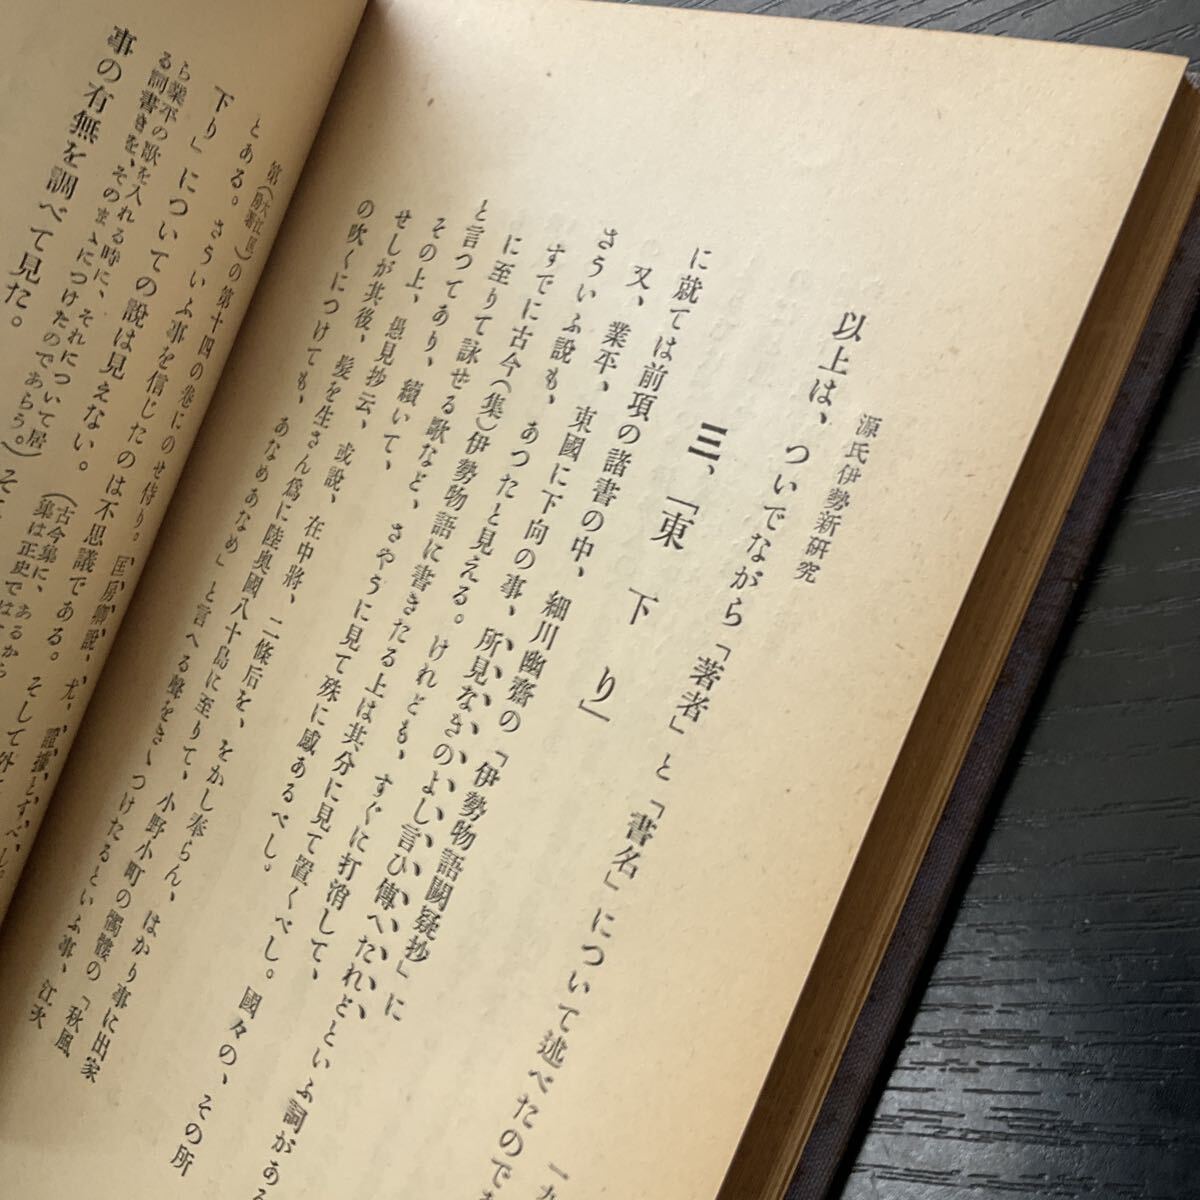 源氏伊勢新研究
一九
以上は、ついでながら「著者」と「書名」について述べたのであ
三、「東下り」
に就ては前項の諸書の中、細川幽齋の「伊勢物語闕疑抄」に
又、業平、東國に下向の事、所見なきのよし言ひ傳へたれどといふ詞がある
さういふ說も、あつたと見える。けれども、すぐに打消して、
すでに古今(集)伊勢物語に書きたる上は其分に見て置くべし。國々の、その所
に至りて詠せる歌など、さやうに見て殊に感あるべし。
と言つてあり、續いて、
その上、愚見抄云、或說、在中將、二條后を、をかし奉らん、はかり事に出家
せしが其後、髮を生さん爲に陸奧國八十島に至りて、小野小町の髑髏の「秋風
の吹くにつけても、あなめあなめ」と言へる聲をきゝつけたるといふ事、江次
第(大江匡房著)の第十四の卷にのせ侍り。匡房卿說、尤、證據とすべし。
とある。さういふ事を信じたのは不思議である。そして外
下り」についての說は見えない。(古今集に、あるから
ら業平の歌を入れる時に、それについて居
る詞書きを、そのまゝにつけたのであらう。)そこ
事の有無を調べて見た。